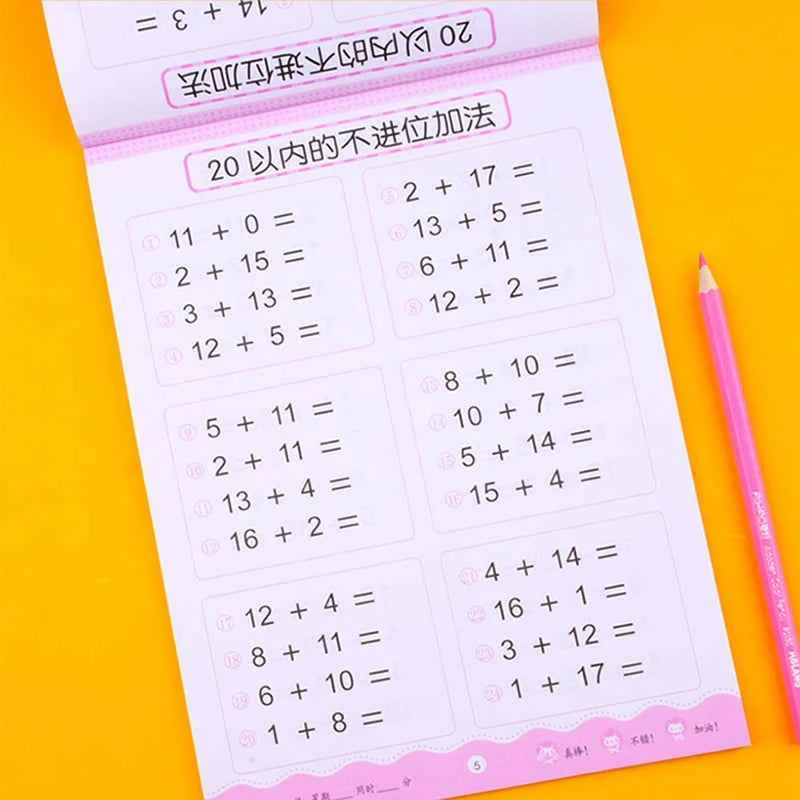 14 + 3 =
20 以内的不进位加法
20 以内的不进位加法
① 11 + 0 =
② 2 + 15 =
③ 3 + 13 =
④ 12 + 5 =
⑤ 2 + 17 =
⑥ 13 + 5 =
⑦ 6 + 11 =
⑧ 12 + 2 =
⑨ 5 + 11 =
⑩ 2 + 11 =
⑪ 13 + 4 =
⑫ 16 + 2 =
⑬ 8 + 10 =
⑭ 10 + 7 =
⑮ 5 + 14 =
⑯ 15 + 4 =
⑰ 12 + 4 =
⑱ 8 + 11 =
⑲ 6 + 10 =
⑳ 1 + 8 =
㉑ 4 + 14 =
㉒ 16 + 1 =
㉓ 3 + 12 =
㉔ 1 + 17 =
星期____ 用时____ 分
5
真棒! 不错! 加油!